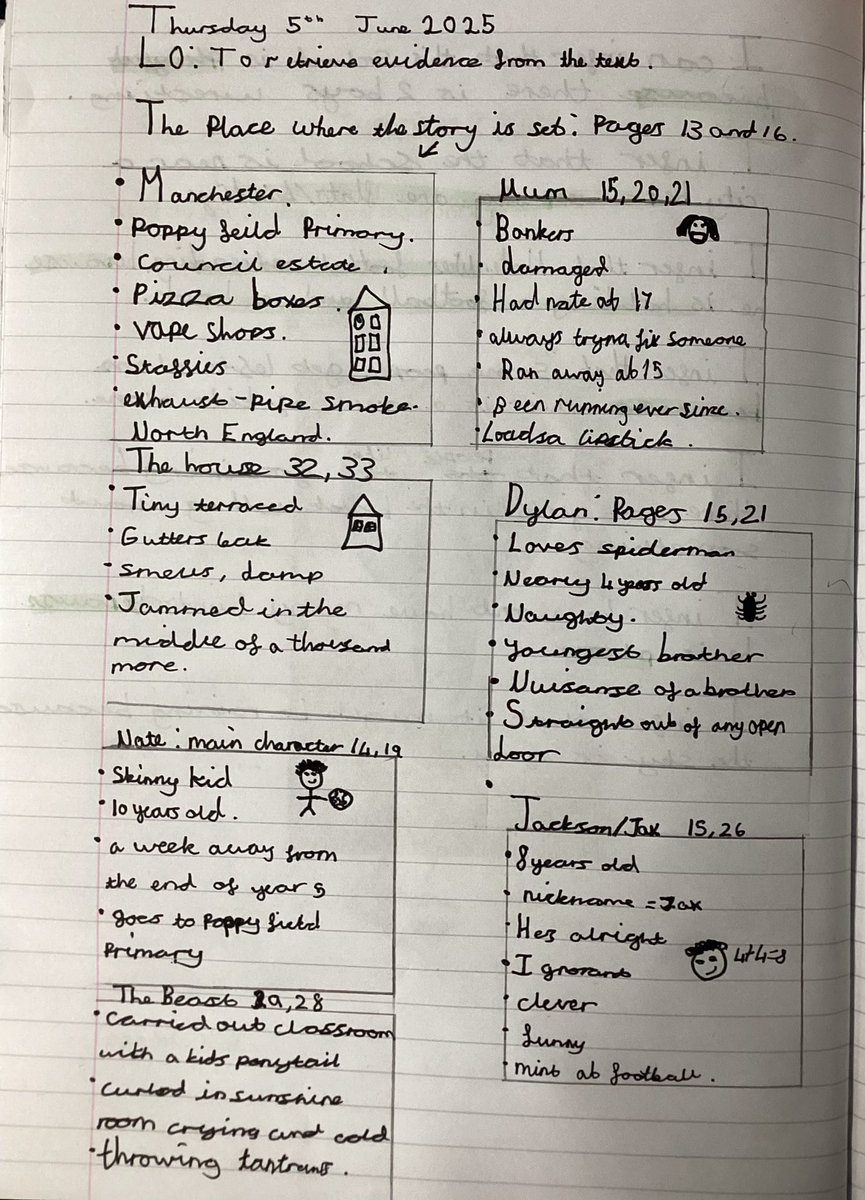 Thursday 5th June 2025
LO: To retrieve evidence from the text.
The Place where the story is set: Pages 13 and 16.
• Manchester.
• Poppy feild Primary.
• Council estate.
• Pizza boxes.
• vape shops.
• Staffies
• exhaust-pipe smoke.
North England.
The house 32,33
• Tiny terraced
• Gutters leak
• smells, damp
• Jammed in the
middle of a thousand
more.
Nate: main character 14,19
• Skinny kid
• 10 years old.
• a week away from
the end of year 5
• goes to Poppy field
Primary
The Beast 19,28
• carried out classroom
with a kids ponytail
• curled in sunshine
room crying and cold
• throwing tantrums.
Mum 15,20,21
• Bonkers
• damaged
• Had nate at 17
• always tryna fix someone
• Ran away at 15
• Been running ever sinse.
• Loadsa lipstick.
Dylan: Pages 15,21
• Loves spiderman
• Nearly 4 years old
• Naughty.
• Youngest brother
• Nuisanse of a brother
• Straight out of any open
door
•
Jackson/Jax 15,26
• 8 years old
• nickname = Jax
• Hes alright
• Ignorant
• clever
• funny
• mint at football.
4+4=8